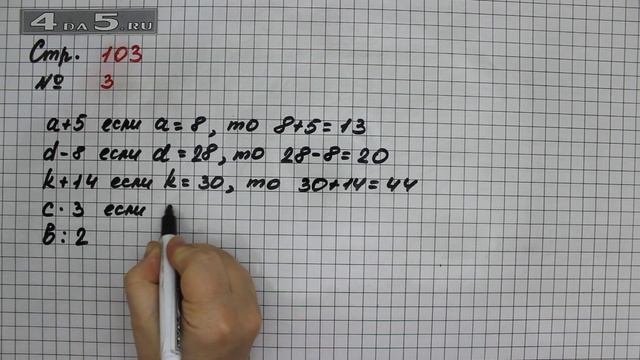 4DA5.RU
Стр. 103
№ 3
a+5 если a=8, то 8+5=13
d-8 если d=28, то 28-8=20
k+14 если k=30, то 30+14=44
c·3 если
в:2